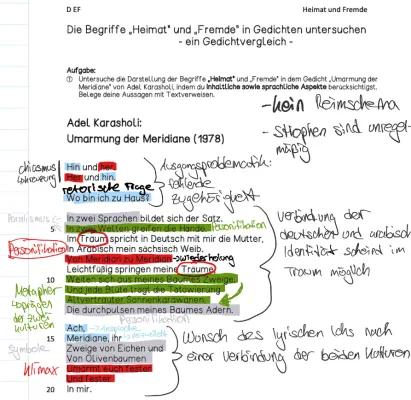 D EF
Heimat und Fremde
Die Begriffe „Heimat" und „Fremde" in Gedichten untersuchen
- ein Gedichtvergleich -
Aufgabe:
① Untersuche die Darstellung der Begriffe „Heimat" und „Fremde" in dem Gedicht „Umarmung der
Meridiane" von Adel Karasholi, indem du inhaltliche sowie sprachliche Aspekte berücksichtigst.
Belege deine Aussagen mit Textverweisen.
- kein Reimschema
- Strophen sind unregel-
mäßig
Adel Karasholi:
Umarmung der Meridiane (1978)
Chiasmus
Hin und her.
Her und hin.
rhetorische Frage
Wo bin ich zu Haus?
Ausgangsproblematik:
fehlende
Zugehörigkeit
Parallelismus
In zwei Sprachen bildet sich der Satz.
5
In zwei Welten greifen die Hände.
Personifikation
Im Traum spricht in Deutsch mit mir die Mutter,
Personifikation
In Arabisch mein sächsisch Weib.
Von Meridian zu Meridian
→ Wiederholung
Leichtfüßig springen meine Träume
10
Weiten sich aus meines Baumes Zweige.
Und jede Blüte trägt die Tätowierung
Altvertrauter Sonnenkarawanen.
Die durchpulsen meines Baumes Adern.
Personifikation
Verbindung der
deutschen und arabisch
Identität scheint im
Traum möglich
Metapher
der zwei
Kulturen
Ach,
15
Meridiane, ihr
Symbole
Zweige von Eichen und
Von Olivenbäumen
Klimax
Umarmt euch fester
Und fester
20
In mir.
Wunsch des lyrischen Ichs nach
einer Verbindung der beiden Kulturen